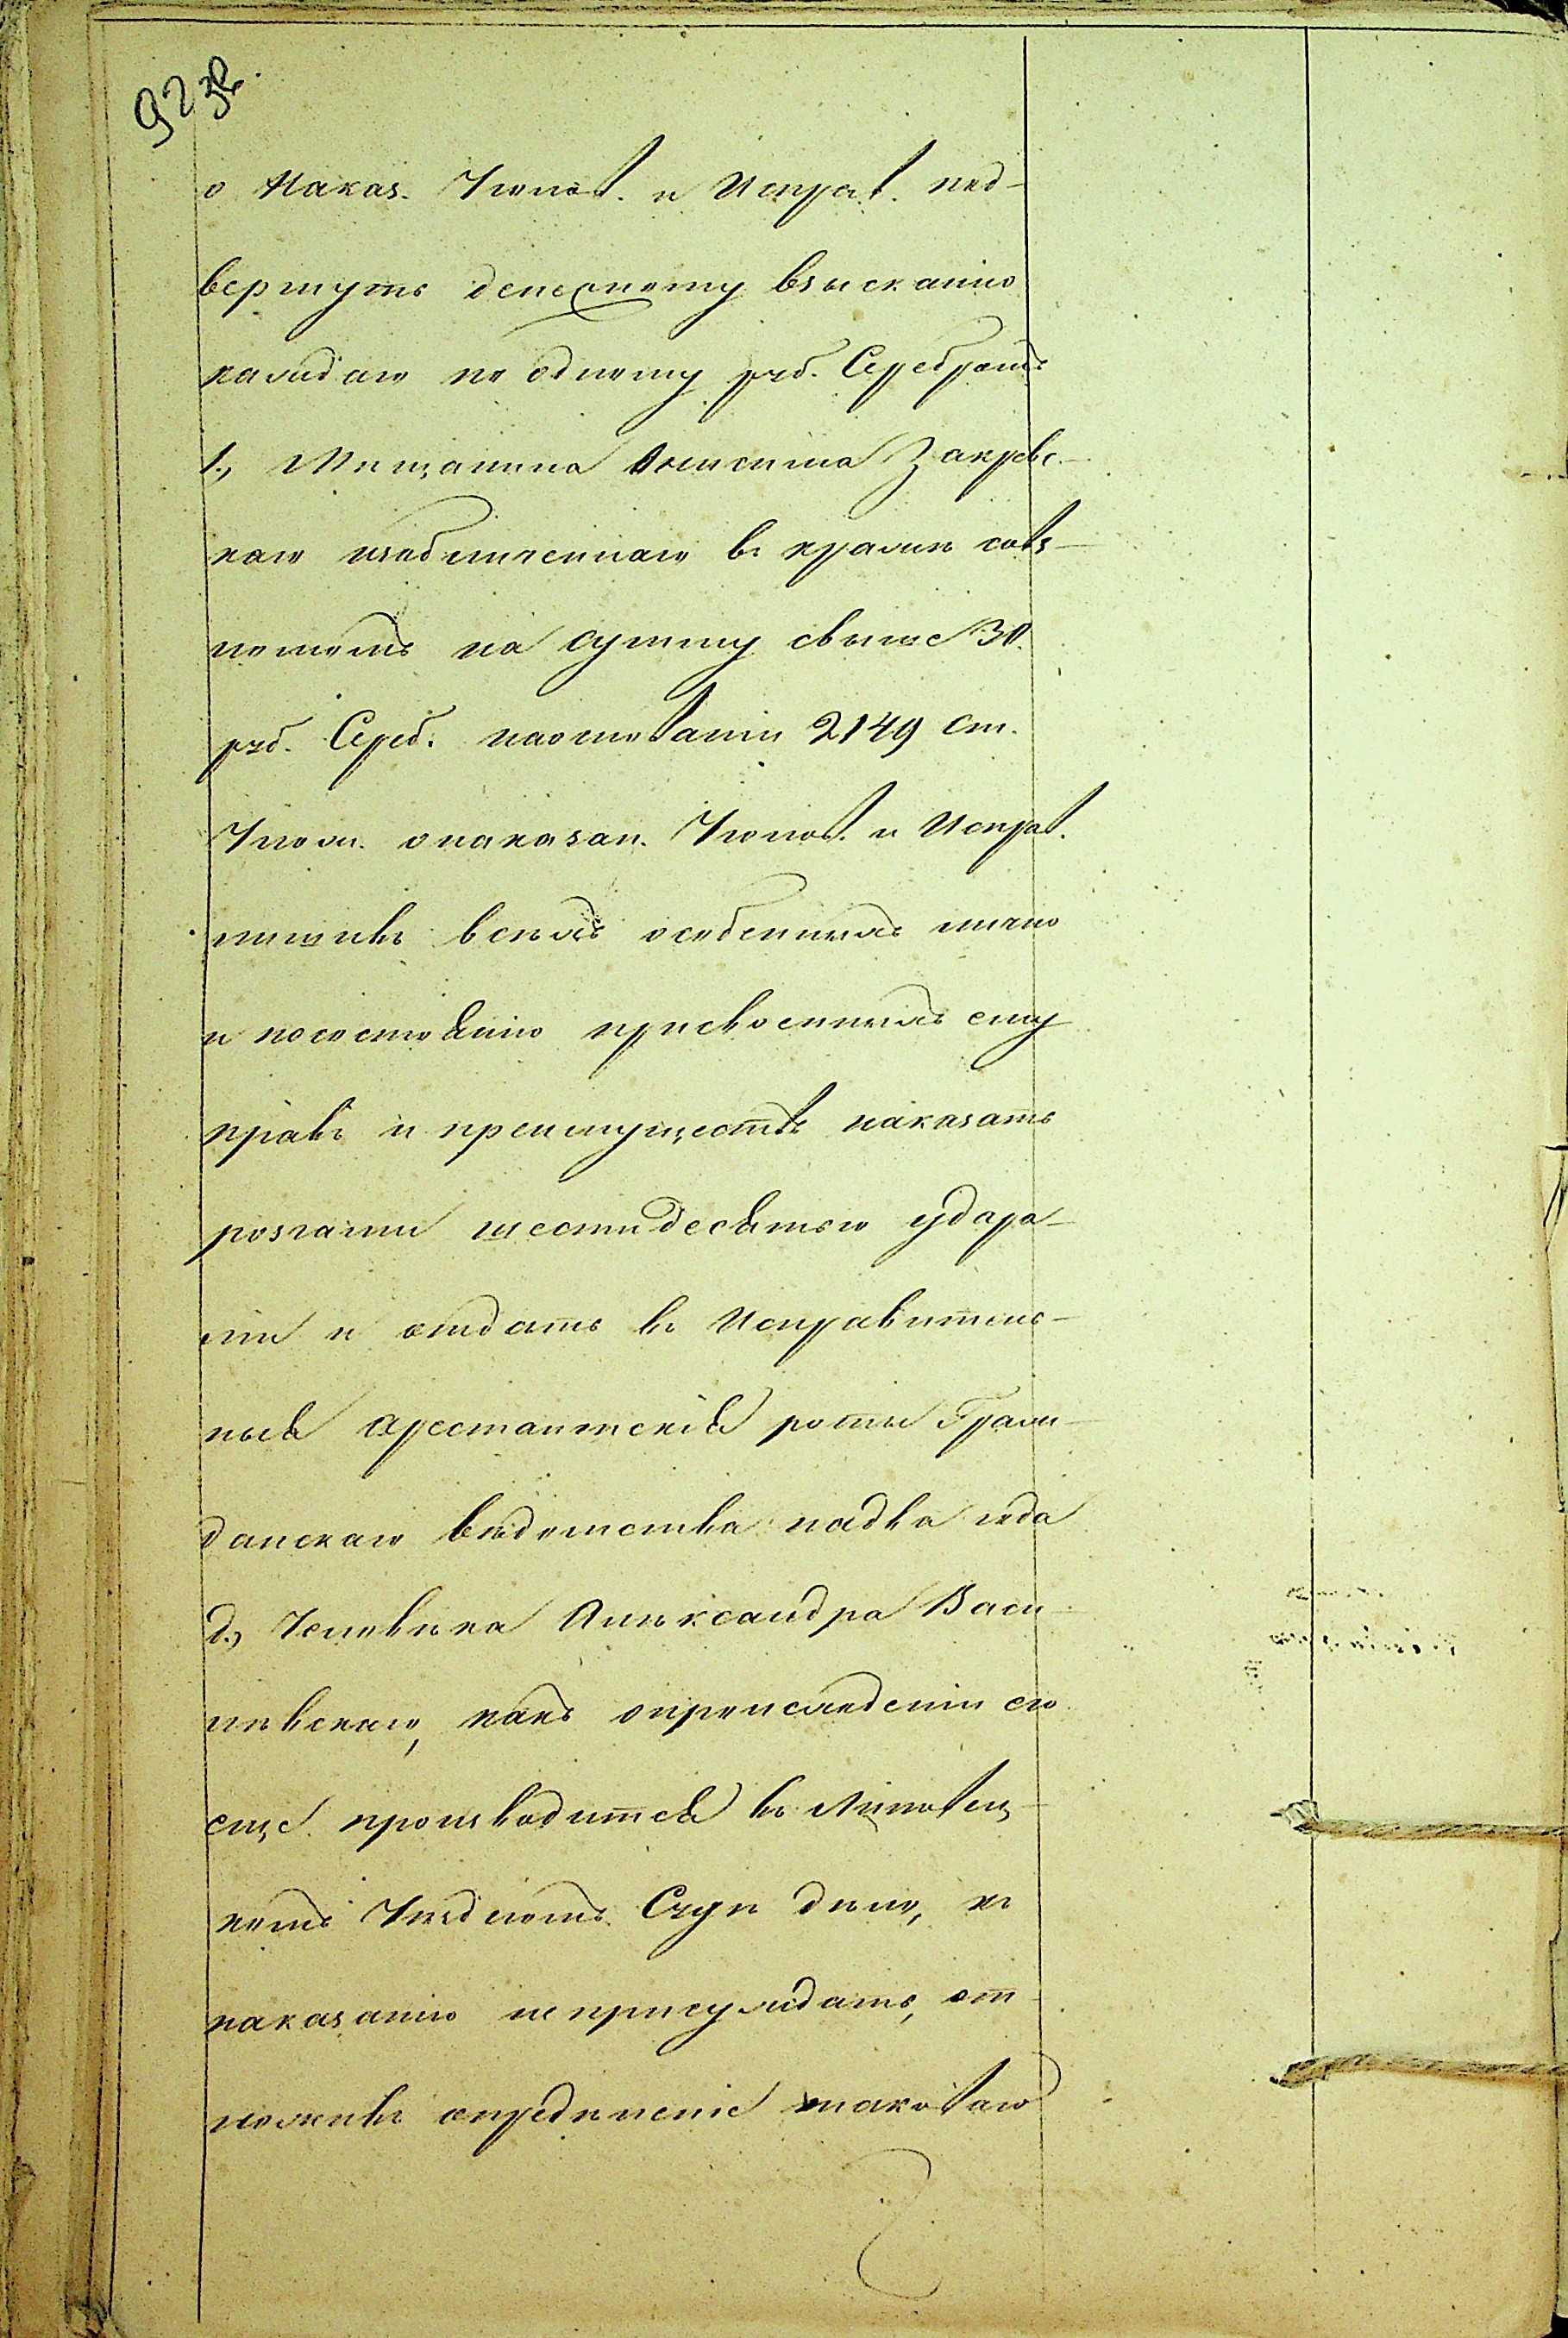 92 зв.
о Наказ. Уголов. и Исправ. под-
вергнуть денежному взысканію
каждаго по одному руб. Серебромъ
1., Мѣщанина Закрев-
каго изобличеннаго въ кражѣ совз-
ломомъ на сумму свыше 30.
руб. Сереб. наоснованіи 2149 ст.
Улож. онаказан. Уголов. и Исправ.
лишивъ всѣхъ особенныхъ лично
и посостоянію присвоенныхъ ему
правъ и преимуществъ наказать
розгами шестидесятью удара-
ми и отдать въ Исправитель-
ныя арестантскія роты Граж-
данскаго вѣдомства надва года
2., Человѣка Александра Васи-
левскаго, какъ опроисхождении его
еще производится въ Липовец-
комъ Уѣздномъ Судѣ дѣло, къ
наказанію неприсуждать, от-
ложивъ опредѣленіе таковаго